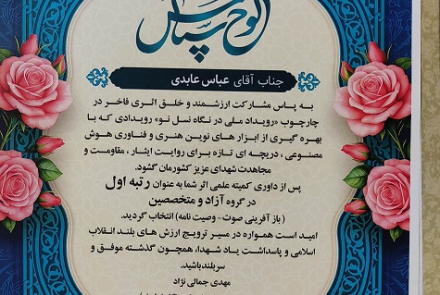 لوح سپاس
جناب آقای عباس عابدی
به پاس مشارکت ارزشمند و خلق اثری فاخر در
چارچوب «رویداد ملی در نگاه نسل نو» رویدادی که با
بهره گیری از ابزار های نوین هنری و فناوری هوش
مصنوعی ، دریچه ای تازه برای روایت ایثار ، مقاومت و
مجاهدت شهدای عزیز کشورمان گشود.
پس از داوری کمیته علمی اثر شما به عنوان رتبه اول
در گروه آزاد و متخصصین
( باز آفرینی صوت - وصیت نامه) انتخاب گردید.
امید است همواره در مسیر ترویج ارزش های بلند انقلاب
اسلامی و پاسداشت یاد شهدا، همچون گذشته موفق و
سربلند باشید.
مهدی جمالی نژاد